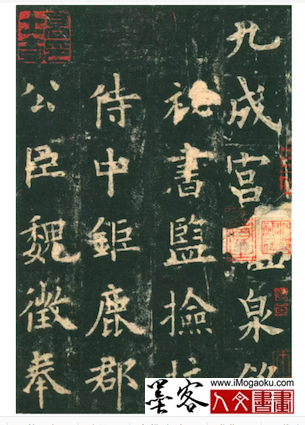 九成宮 泉
祕書監撿
侍中鉅鹿郡
公臣魏徵奉
墨客
www.imogaoku.com
人文書畫